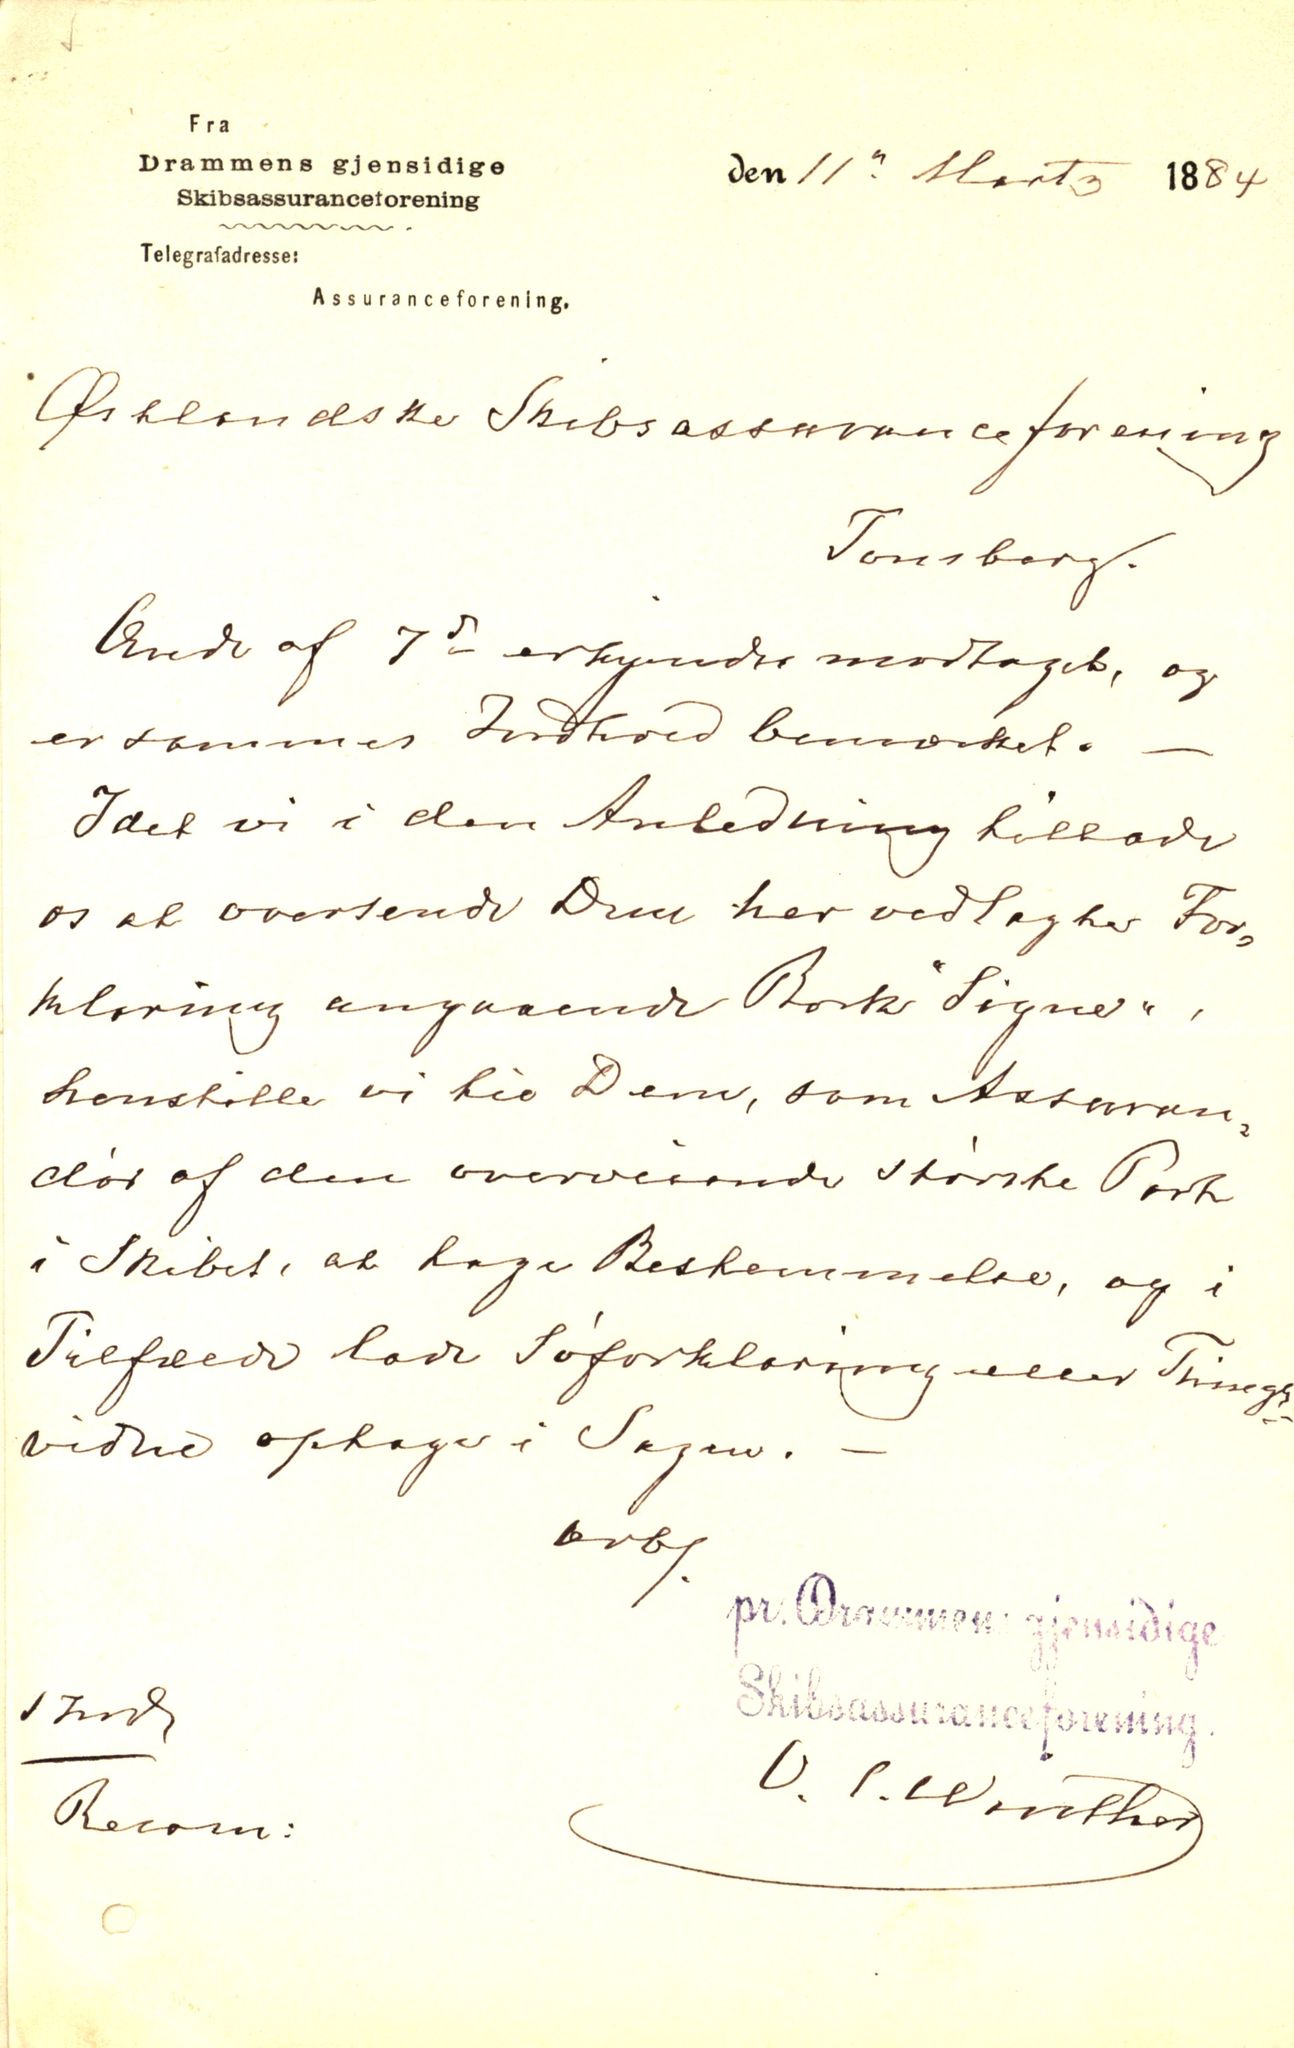 Fra
Drammens gjensidige
Skibsassuranceforening
Telegrafadresse:
Assuranceforening.
den 11te Martz 1884
Østlandske Skibsassuranceforening
Tønsberg.
Ærede af 7de erkjendes modtaget, og
er sammes Indhold bemærket. —
Idet vi i den Anledning tillade
os at oversende Dem her vedlagte For-
klaring angaaende Bark "Signe",
henstille vi til Dem, som Assuran-
dør af den overveiende største Part
i Skibet, at tage Bestemmelse, og i
Tilfælde lade Søforklaring eller Things-
vidne optage i Sagen. —
Ærb.
pr. Drammens gjensidige
Skibsassuranceforening.
O. C. Winther
1 Indl
Recom: